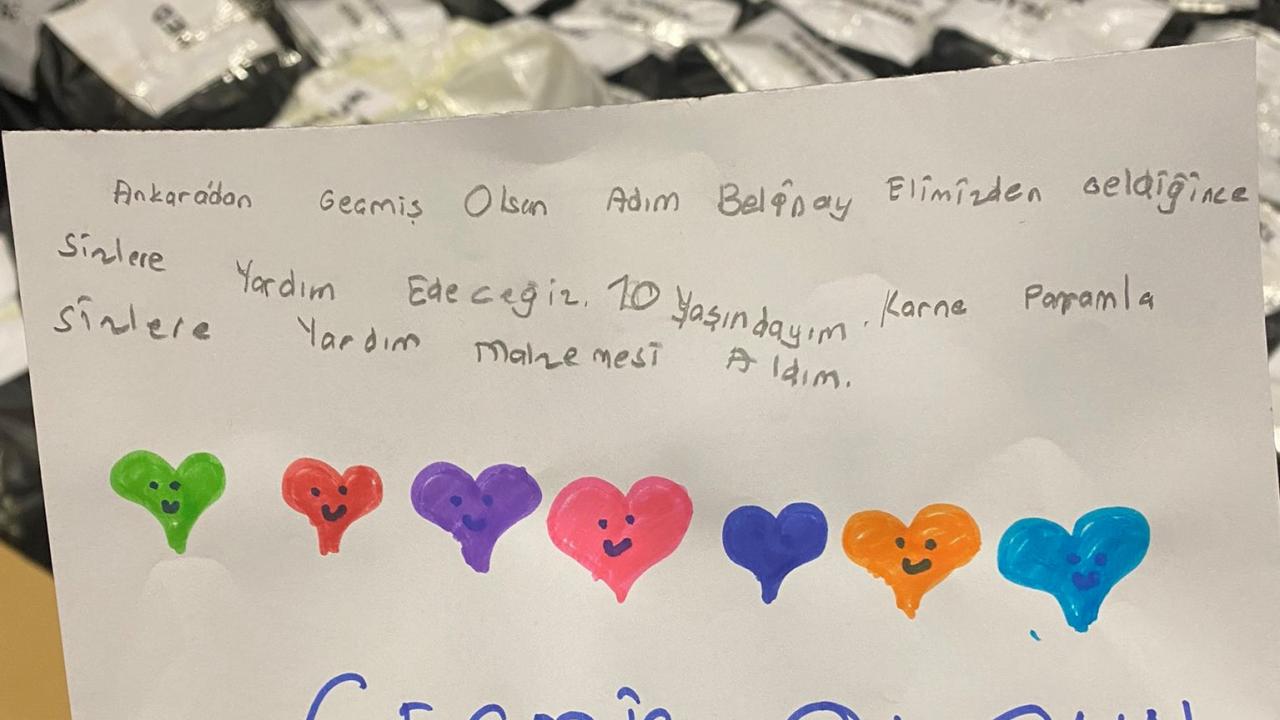 Ankara'dan Geçmiş Olsun Adım Belginay Elimizden Geldiğince
Sizlere Yardım Edeceğiz. 10 Yaşındayım. Karne Paramla
Sizlere Yardım Malzemesi Aldım.